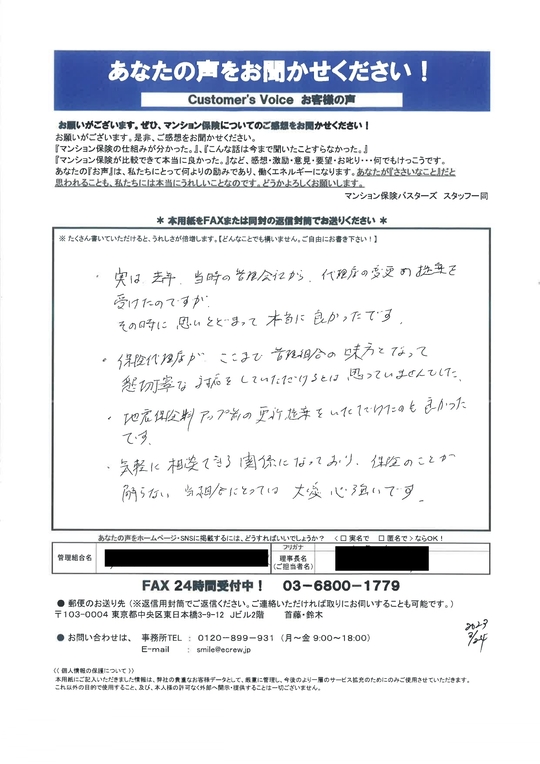 あなたの声をお聞かせください!
Customer's Voice お客様の声
お願いがございます。ぜひ、マンション保険についてのご感想をお聞かせください!
お願いがございます。是非、ご感想をお聞かせください。
『マンション保険の仕組みが分かった。』、『こんな話は今まで聞いたことすらなかった。』
『マンション保険が比較できて本当に良かった。』など、感想・激励・意見・要望・お叱り・・・何でもけっこうです。
あなたの『お声』は、私たちにとって何よりの励みであり、働くエネルギーになります。あなたが『ささいなこと』だと
思われることも、私たちには本当にうれしいことなのです。どうかよろしくお願いします。
マンション保険バスターズ スタッフ一同
＊ 本用紙をFAXまたは同封の返信封筒でお送りください ＊
※ たくさん書いていただけると、うれしさが倍増します。【どんなことでも構いません。ご自由にお書き下さい!】
・ 実は 去年、当時の管理会社から、代理店の変更の提案を
受けたのですが、
その時に 思いとどまって 本当に良かったです。
・ 保険代理店が ここまで 管理組合の味方となって
懇切寧な 対応をしていただけるとは 思っていませんでした。
・ 地震保険料アップ前の更新提案をいただけたのも良かった
です。
・ 気軽に相談できる関係になっており、保険のことが
解らない 当組合にとっては 大変 心強いです。
あなたの声をホームページ・SNSに掲載するには、どうすればいいでしょうか? 〈 □ 実名で □ 匿名で 〉ならOK!
管理組合名
フリガナ
理事長名
(ご担当者名)
FAX 24時間受付中! 03-6800-1779
● 郵便のお送り先 (※返信用封筒でご返信ください。ご連絡いただければ取りにお伺いすることも可能です。)
〒103-0004 東京都中央区東日本橋3-9-12 Jビル2階 首藤・鈴木
● お問い合わせは、 事務所TEL : 0120-899-931 (月〜金 9:00〜18:00)
E-mail : smile@ecrew.jp
2023
3/24
《 個人情報の保護について 》
本用紙にご記入いただきました情報は、弊社の貴重なお客様データとして、厳重に管理し、今後のより一層のサービス拡充のためにのみご使用させていただきます。
これ以外の目的で使用すること、及び、本人様の許可なく外部へ開示・提供することは一切ございません。